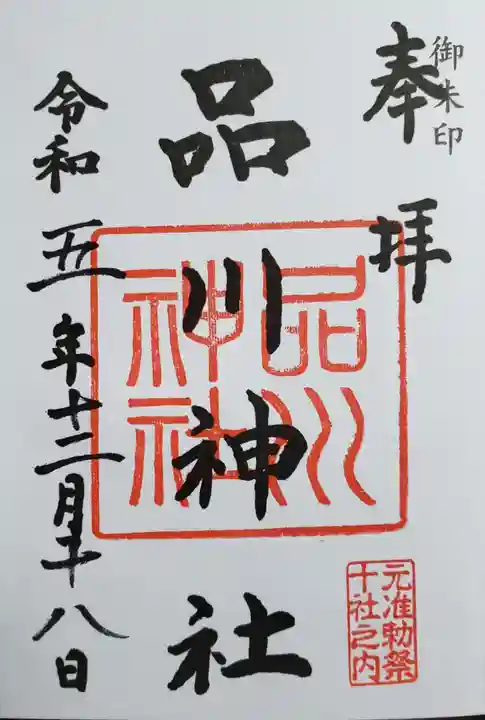 御朱印
奉拝
品川神社
品川
神社
令和五年十二月十八日
元准勅祭
十社之内